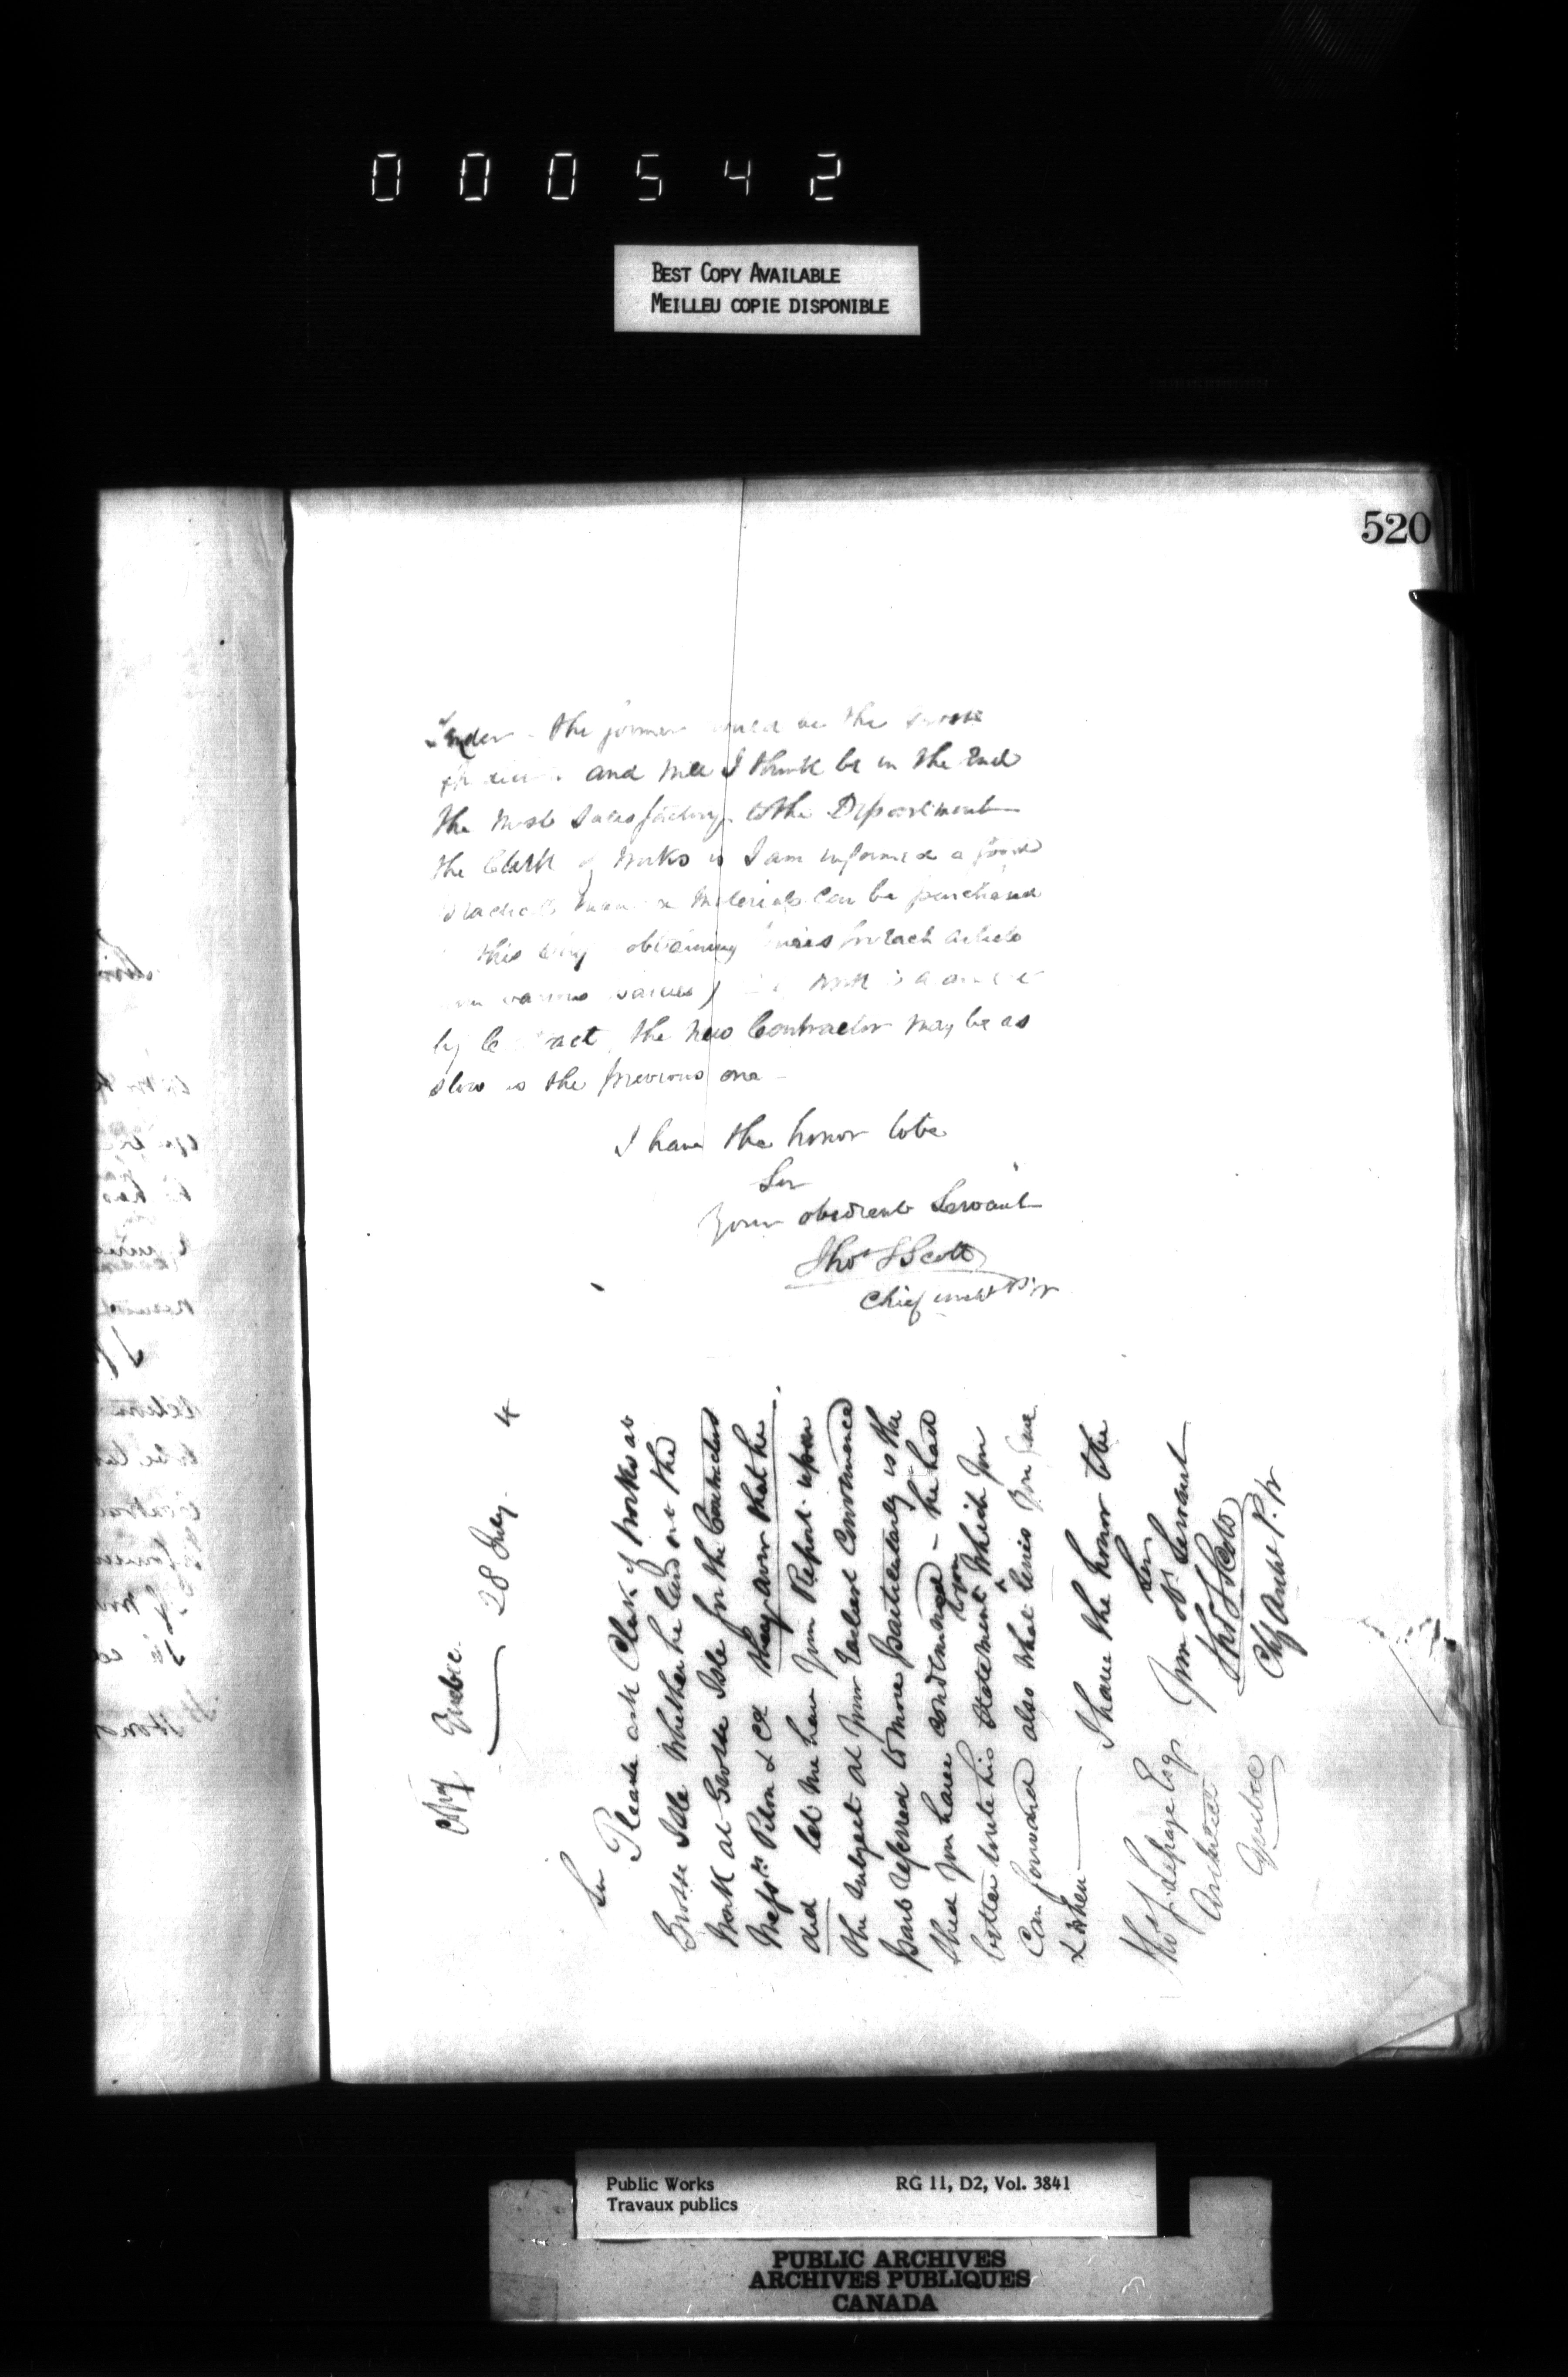 000542
BEST COPY AVAILABLE
MEILLEU COPIE DISPONIBLE
520
Tender - the former would be the
and will I think be in the End
the most satisfactory to the Department
the Clerk of Works is I am informed a good
Practical man & materials can be purchased
this way obtaining prices for each article
various
by act the new Contractor may be as
slow as the previous one -
I have the honor to be
Sir
Your obedient Servant
Thos S Scott
Chief Archt P.W
Copy Quebec
28 July 4
Sir
Please ask Clerk of Works at
Grosse Isle whether he laid out the
Work at Grosse Isle for the Contractors
Messrs Piton & Co they aver that he
did let me have your Report upon
the subject at your earliest convenience
part referred to more particularly is the
shed you have condemned - he had
better write his statement down which you
can forward also what lines you gave
& when
I have the honor to be
Sir
Your Ob Servant
Thos S Scott
Chf Archt P.W
Thos J. Lepage Esq.
Architect
Quebec
Public Works
Travaux publics
RG 11, D2, Vol. 3841
PUBLIC ARCHIVES
ARCHIVES PUBLIQUES
CANADA